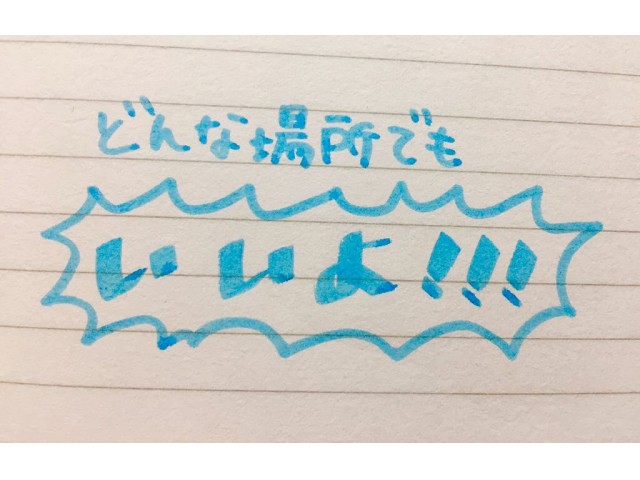 どんな場所でも
いいよ!!!